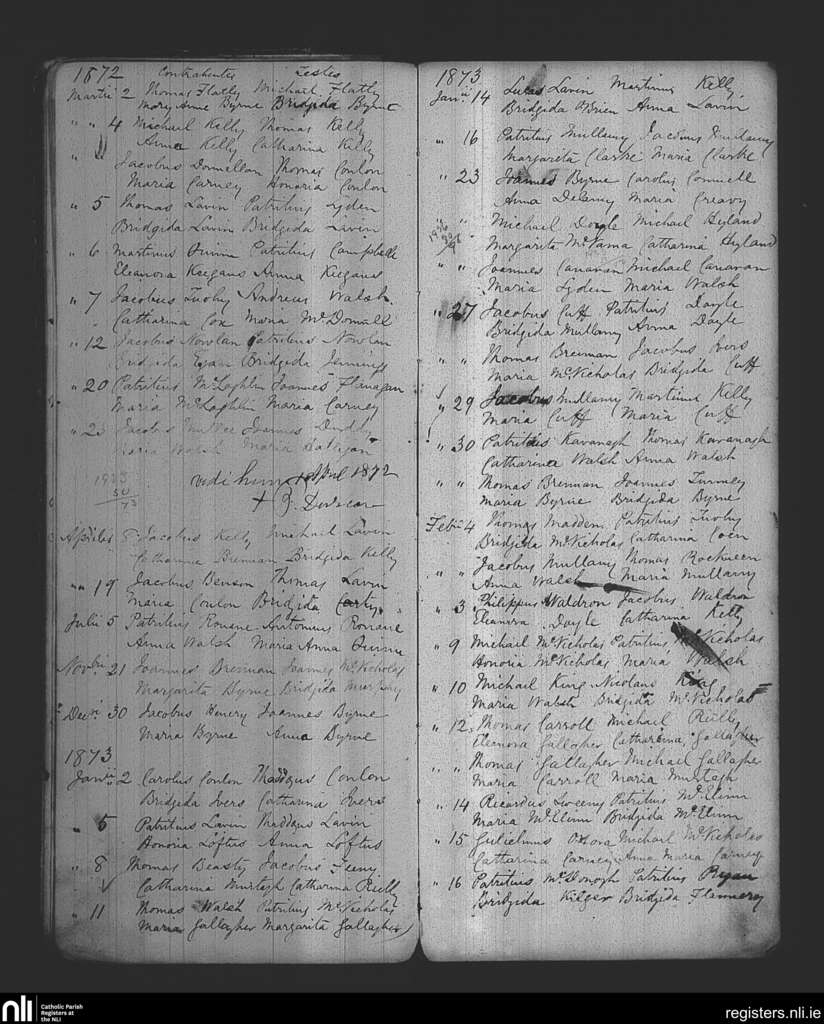 1872 Contrahentes Testes
Martii 2 Thomas Flatly Michael Flatly
Mary Anne Byrne Bridgida Byrne
" " 4 Michael Kelly Thomas Kelly
Anna Kelly Catharina Kelly
" " Jacobus Donnellan Thomas Conlon
Maria Carney Honoria Conlon
" 5 Thomas Lavin Patritius Lyden
Bridgida Lavin Bridgida Lavin
" 6 Martinus Quinn Patritius Campbell
Eleanora Keegans Anna Keegans
" 7 Jacobus Tuohy Andreas Walsh.
Catharina Cox Maria McDonnell
" 12 Jacobus Nowlan Patritius Nowlan
Bridgida Egan Bridgida Jennings
" 20 Patritius McLoghlin Joannes Flanagan
Maria McLoghlin Maria Carney
" 23 Jacobus Joannes
Maria Walsh Maria
1923
50
73
vidi hunc April 1872
+
Aprilis Jacobus Kelly Michael Lavin
Catharina Brennan Bridgida Kelly
" " 19 Jacobus Benson Thomas Lavin
Maria Conlon Bridgida Carty
Julii 5 Patritius Rouane Antonius Rouane
Anna Walsh Maria Anna Quinn
Novbri 21 Joannes Brennan Joannes McNicholas
Margarita Byrne Bridgida
Decri 30 Jacobus Henery Joannes Byrne
Maria Byrne Anna Byrne
1873
Janrii 2 Carolus Conlon Thaddeus Conlon
Bridgida Ivers Catharina Ivers
" 5 Patritius Lavin Thaddeus Lavin
Honoria Loftus Anna Loftus
" 8 Thomas Beasty Jacobus Feeny
Catharina Murtagh Catharina Reilly
" 11 Thomas Walsh Patritius McNicholas
Maria Gallagher Margarita Gallagher
1873
Janri 14 Lucas Lavin Martinus Kelly
Bridgida OBrien Anna Lavin
" 16 Patritius Mullany Jacobus Mullany
Margarita Clarke Maria Clarke
" 23 Joannes Byrne Carolus Connell
Anna Delaney Maria Creavy
" Michael Doyle Michael Hyland
Margarita McNama Catharina Hyland
" " Joannes Canavan Michael Canavan
Maria Lyden Maria Walsh
" 27 Jacobus Cuff Patritius Doyle
Bridgida Mullany Anna Doyle
" " Thomas Brennan Jacobus Ivers
Maria McNicholas Bridgida Cuff
" 29 Jacobus Mullany Martinus Kelly
Maria Cuff Maria Cuff
" 30 Patritius Kavanagh Thomas Kavanagh
Catharina Walsh Anna Walsh
" " Thomas Brennan Joannes
Maria Byrne Bridgida Byrne
Febri 4 Thomas Madden Patritius Tuohy
Bridgida McNicholas Catharina Coen
" " Jacobus Mullany Thomas
Anna Walsh Maria Mullany
" 3 Philippus Waldron Jacobus Waldron
Eleanora Doyle Catharina Kelly
" 9 Michael McNicholas Patritius McNicholas
Honoria McNicholas Maria Walsh
" 10 Michael King Nicolaus King
Maria Walsh Bridgida McNicholas
" 12 Thomas Carroll Michael Reilly
Eleonora Gallagher Catharina Gallagher
" " Thomas Gallagher Michael Gallagher
Maria Carroll Maria Murtagh
" 14 Ricardus Sweeny Patritius McElinn
Maria McElinn Bridgida McElinn
" 15 Gulielmus OHora Michael McNicholas
Catharina Carney Anna Maria Carney
" 16 Patritius McDonogh Patritius Ryan
Bridgida Kilger Bridgida Flannery
nli Catholic Parish
Registers at
the NLI
registers.nli.ie